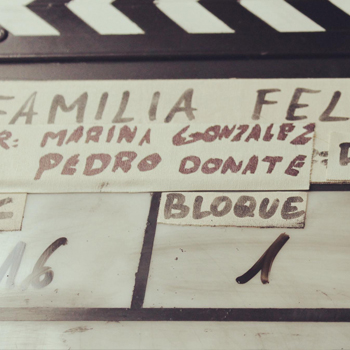 FAMILIA FEL
R: MARINA GONZALEZ
PEDRO DONATE
E BLOQUE
16 1